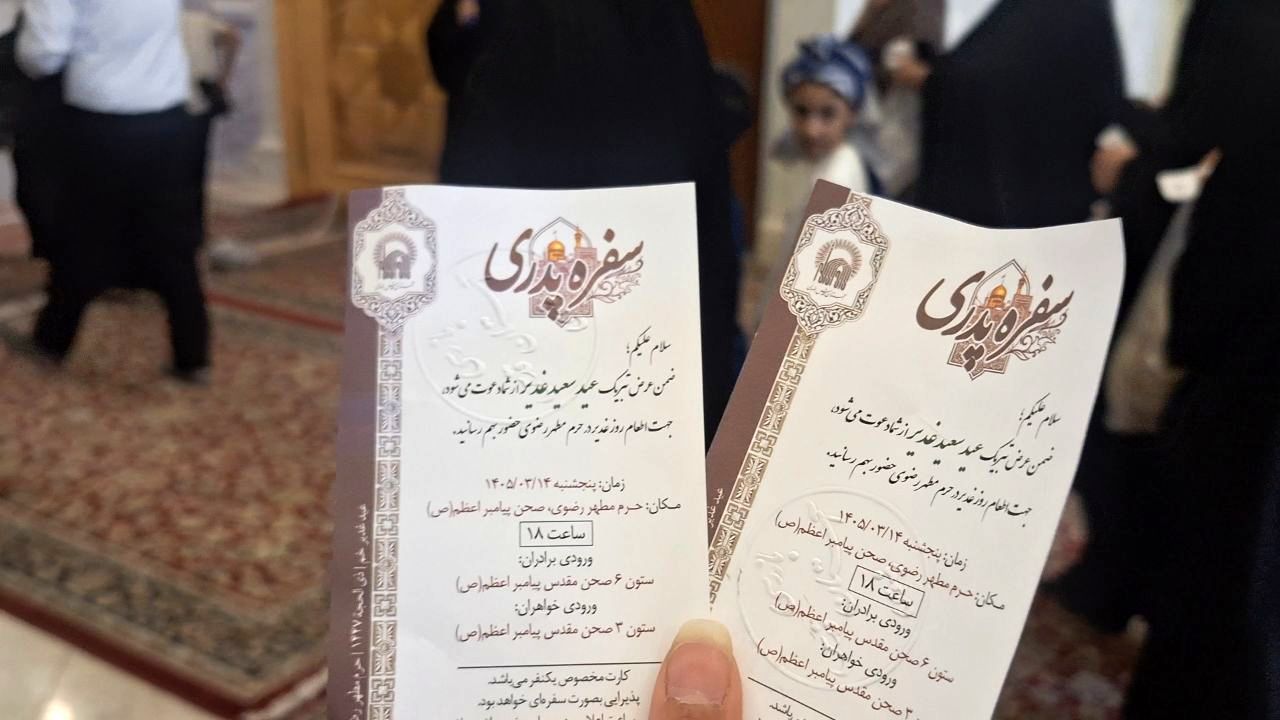 سفره پدری
سلام علیکم؛
ضمن عرض تبریک عید سعید غدیر از شما دعوت می‌شود،
جهت اطعام روز غدیر در حرم مطهر رضوی حضور بهم رسانید.
زمان: پنجشنبه ۱۴۰۵/۰۳/۱۴
مکان: حرم مطهر رضوی، صحن پیامبر اعظم(ص)
ساعت ۱۸
ورودی برادران:
ستون ۶ صحن مقدس پیامبر اعظم(ص)
ورودی خواهران:
ستون ۳ صحن مقدس پیامبر اعظم(ص)
کارت مخصوص یکنفر می‌باشد.
پذیرایی بصورت سفره‌ای خواهد بود.
عید غدیر خم | ذی الحجه ۱۴۴۷ | حرم مطهر
سفره پدری
سلام علیکم؛
ضمن عرض تبریک عید سعید غدیر از شما دعوت می‌شود،
جهت اطعام روز غدیر در حرم مطهر رضوی حضور بهم رسانید.
زمان: پنجشنبه ۱۴۰۵/۰۳/۱۴
مکان: حرم مطهر رضوی، صحن پیامبر اعظم(ص)
ساعت ۱۸
ورودی برادران:
ستون ۶ صحن مقدس پیامبر اعظم(ص)
ورودی خواهران:
۳ صحن مقدس پیامبر اعظم(ص)
باشد.
عید غدیر